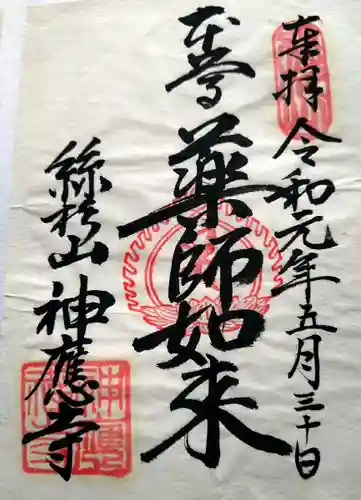 奉拝
令和元年五月三十日
本尊
薬師如来
絲杉山
神應寺